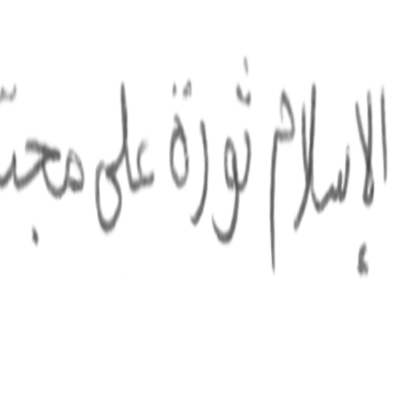 الإسلام ثورة على